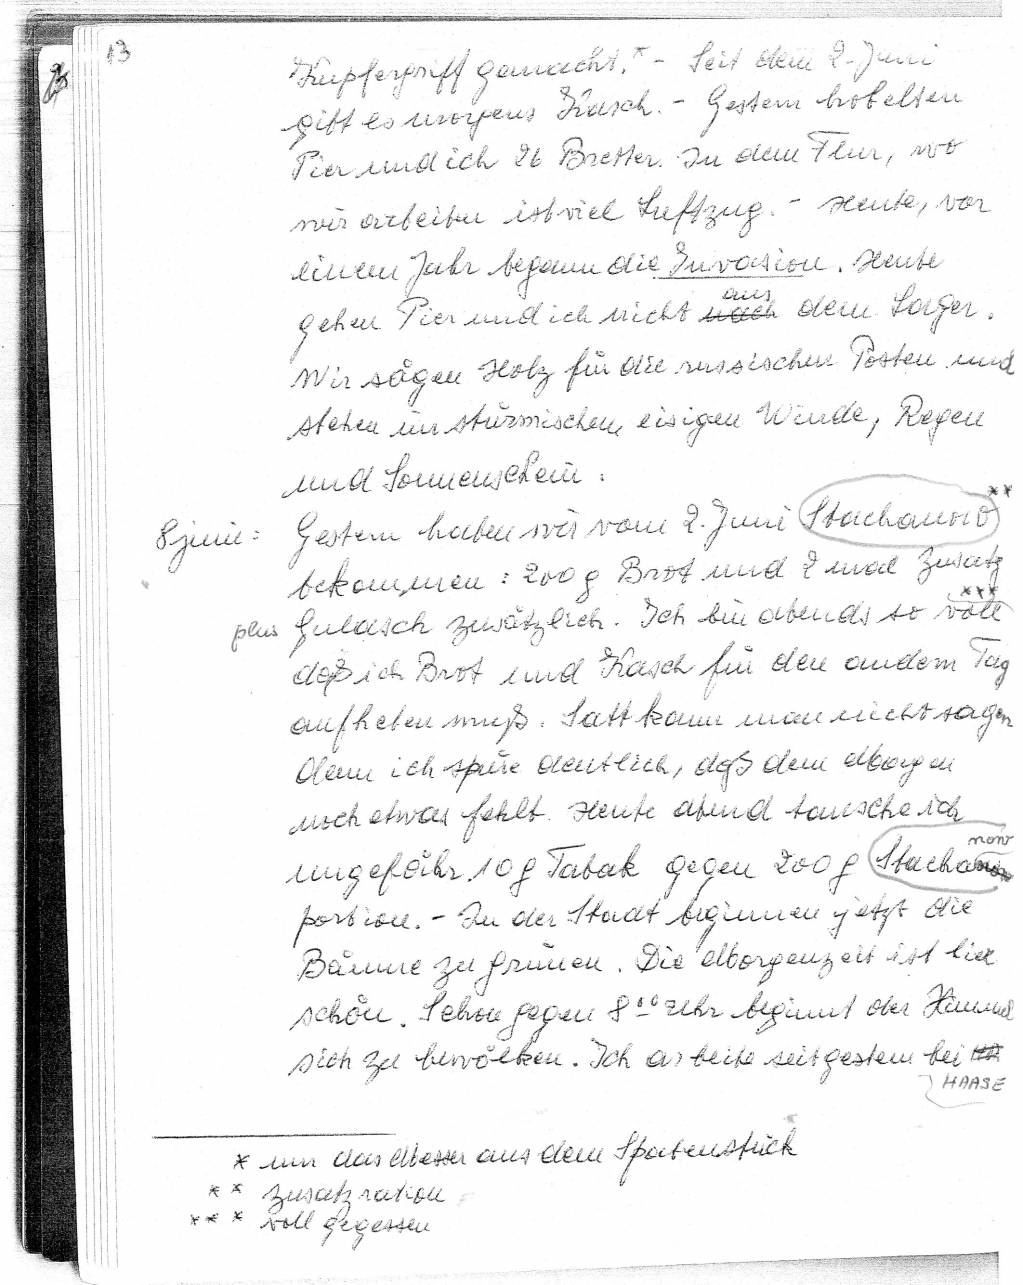 13
Kupfergriff gemacht.* - Seit dem 2. Juni
gibt es morgens Kasch. - Gestern hobelten
Pier und ich 26 Bretter. In dem Flur, wo
wir arbeiten ist viel Luftzug. - Heute, vor
einem Jahr begann die Invasion. Heute
gehen Pier und ich nicht nach aus dem Lager.
Wir sägen Holz für die russischen Posten und
stehen im stürmischen, eisigen Winde, Regen
und Sonnenschein.
8 juni: Gestern haben wir vom 2. Juni Stachanow **
bekommen: 200 g Brot und 2 mal Zusatz
plus Gulasch zusätzlich. Ich bin abends so voll ***
daß ich Brot und Kasch für den andern Tag
aufheben muß. Satt kann man nicht sagen
denn ich spüre deutlich, daß dem Magen
noch etwas fehlt. Heute abend tausche ich
ungefähr 10 g Tabak gegen 200 g Stachanow
portion. - In der Stadt beginnen jetzt die
Bäume zu grünen. Die Morgenzeit ist hier
schön. Schon gegen 8 00 Uhr beginnt der Himmel
sich zu bewölken. Ich arbeite seit gestern bei
HAASE
* um das Messer aus dem Spatenstück
** Zusatzration
*** voll gegessen